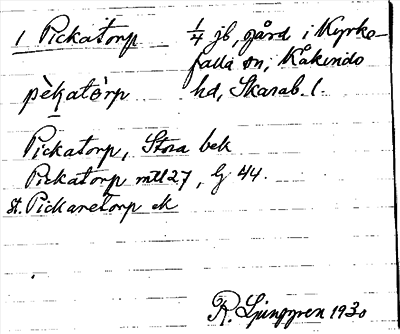 1 Pickatorp ¼ jb, gård i Kyrke-
falla sn, Kåkinds
pèkatòrp hd, Skarab. l.
Pickatorp, Stora bek
Pickatorp mtl 27, G 44.
St. Pickaretorp ek
R. Ljunggren 1930